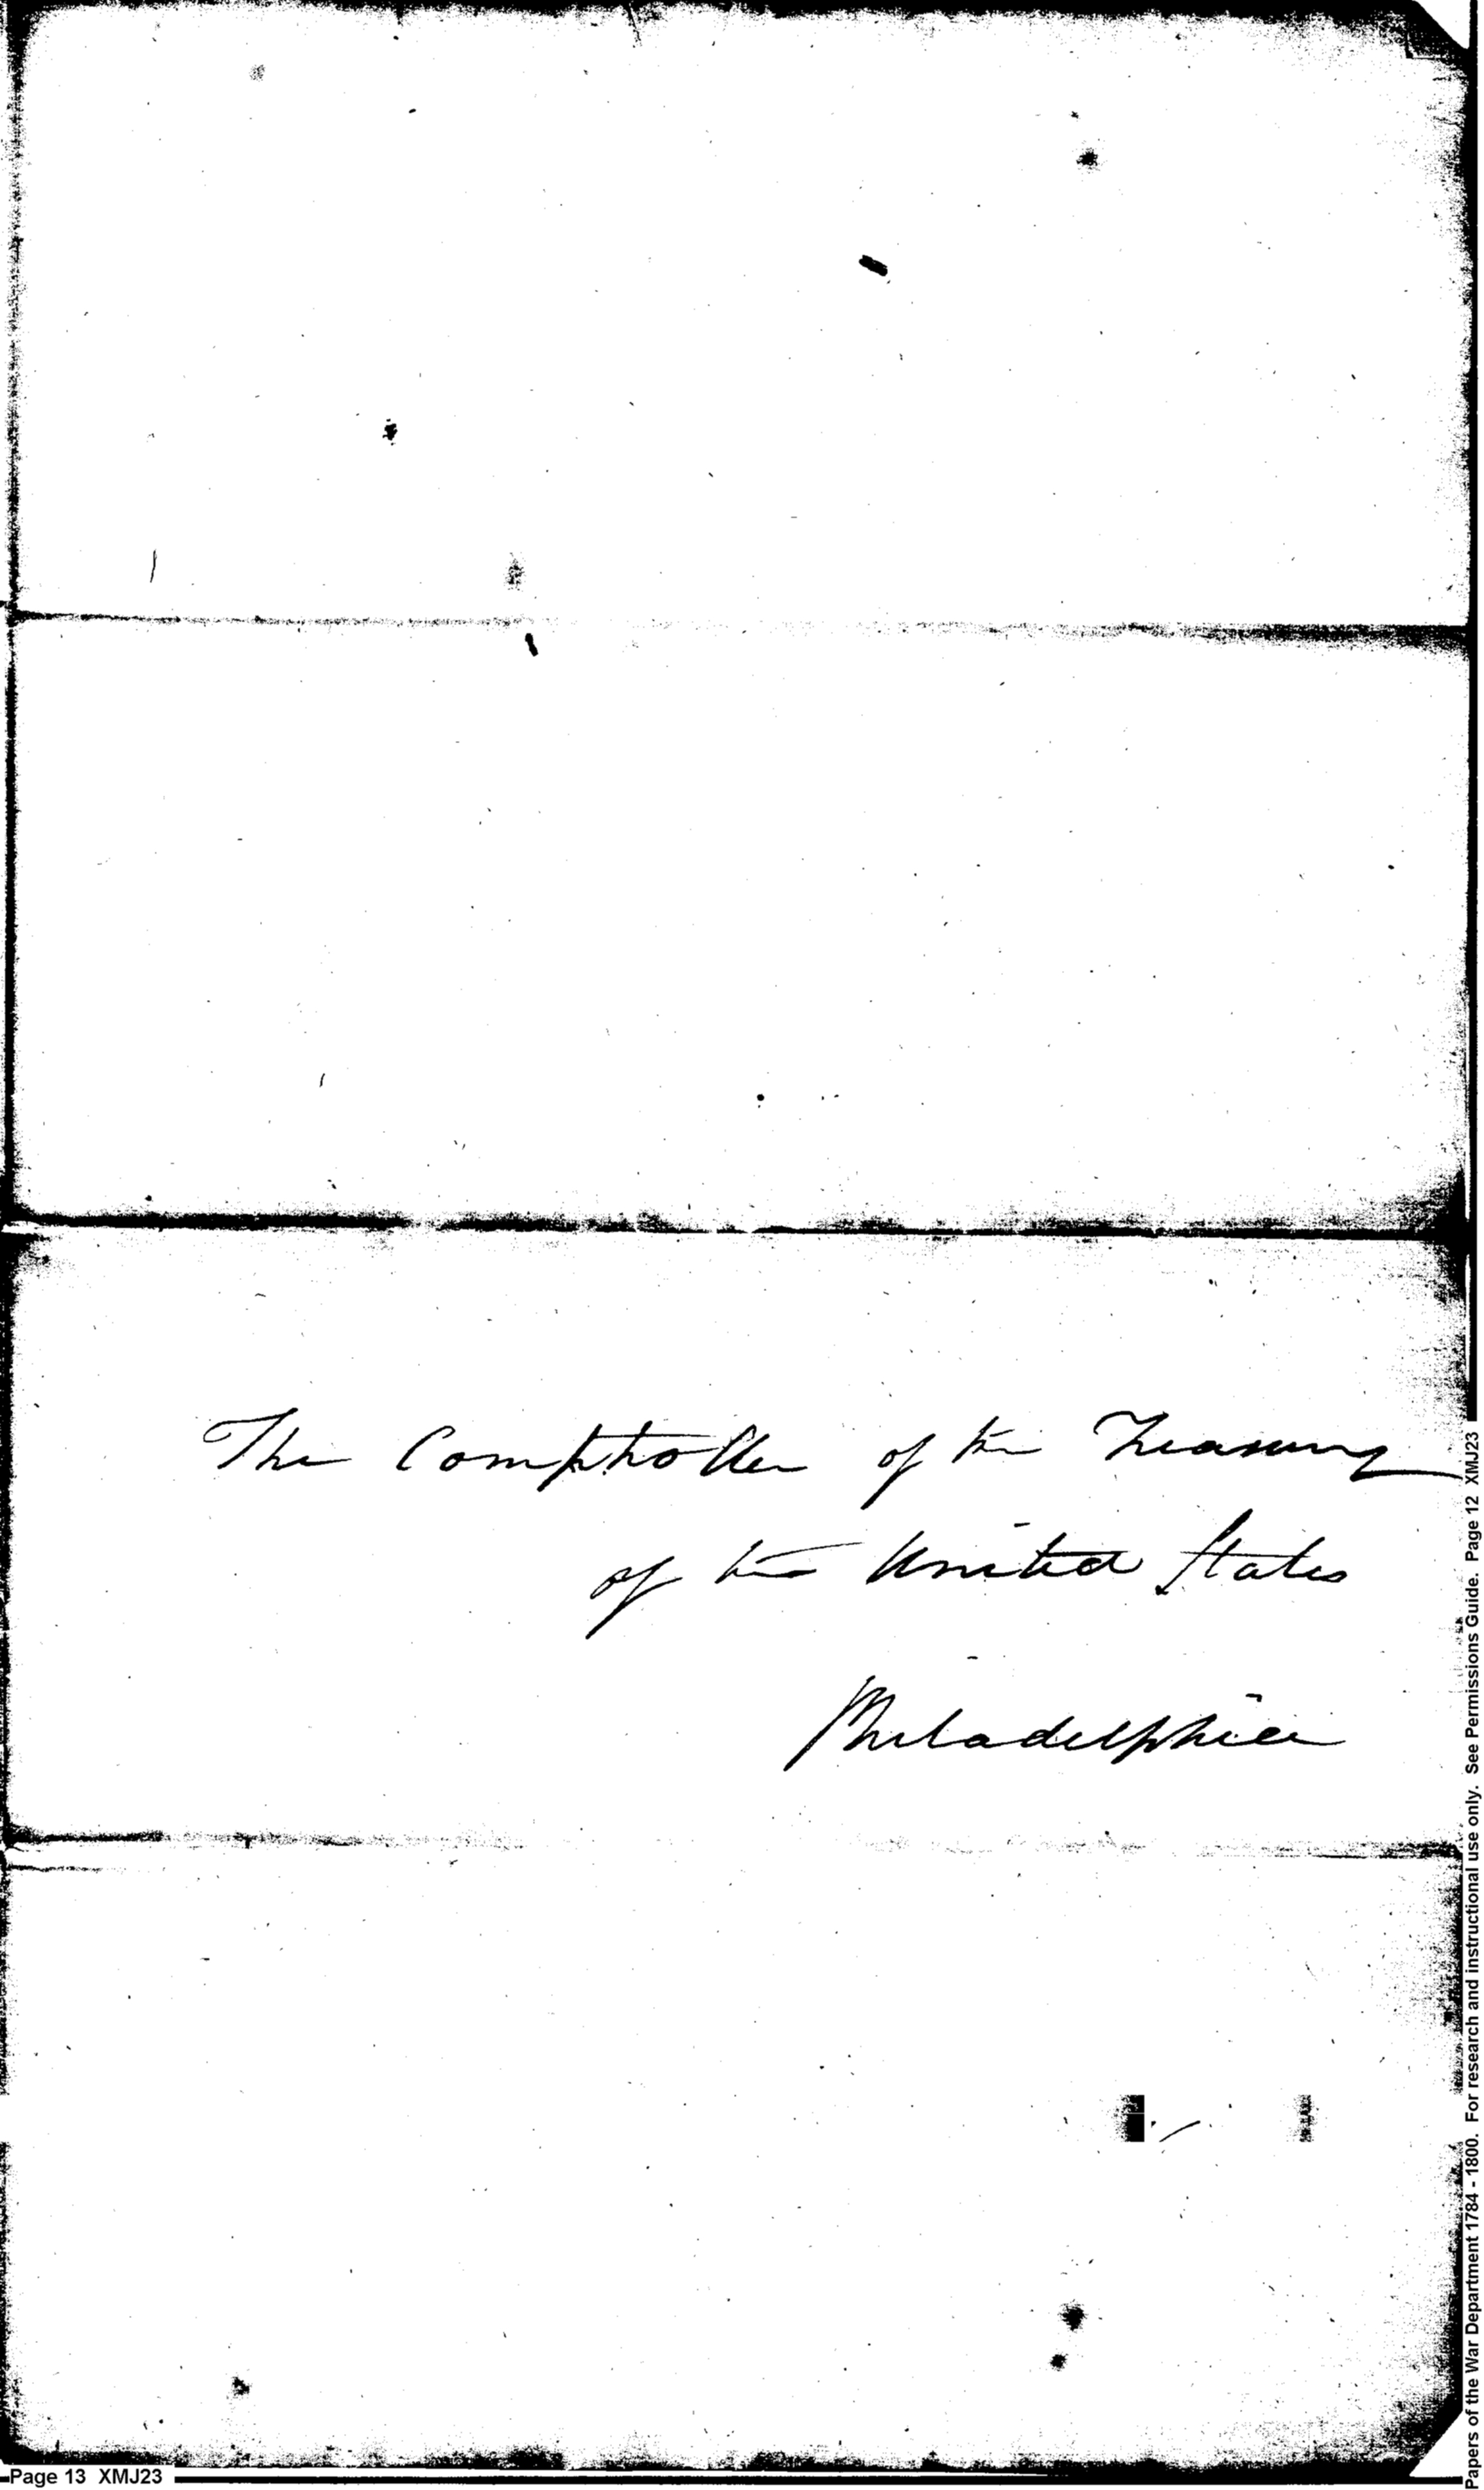 The Comptroller of the Treasury
of the United States
Philadelphia
Papers of the War Department 1784 - 1800. For research and instructional use only. See Permissions Guide. Page 12 XMJ23
Page 13 XMJ23